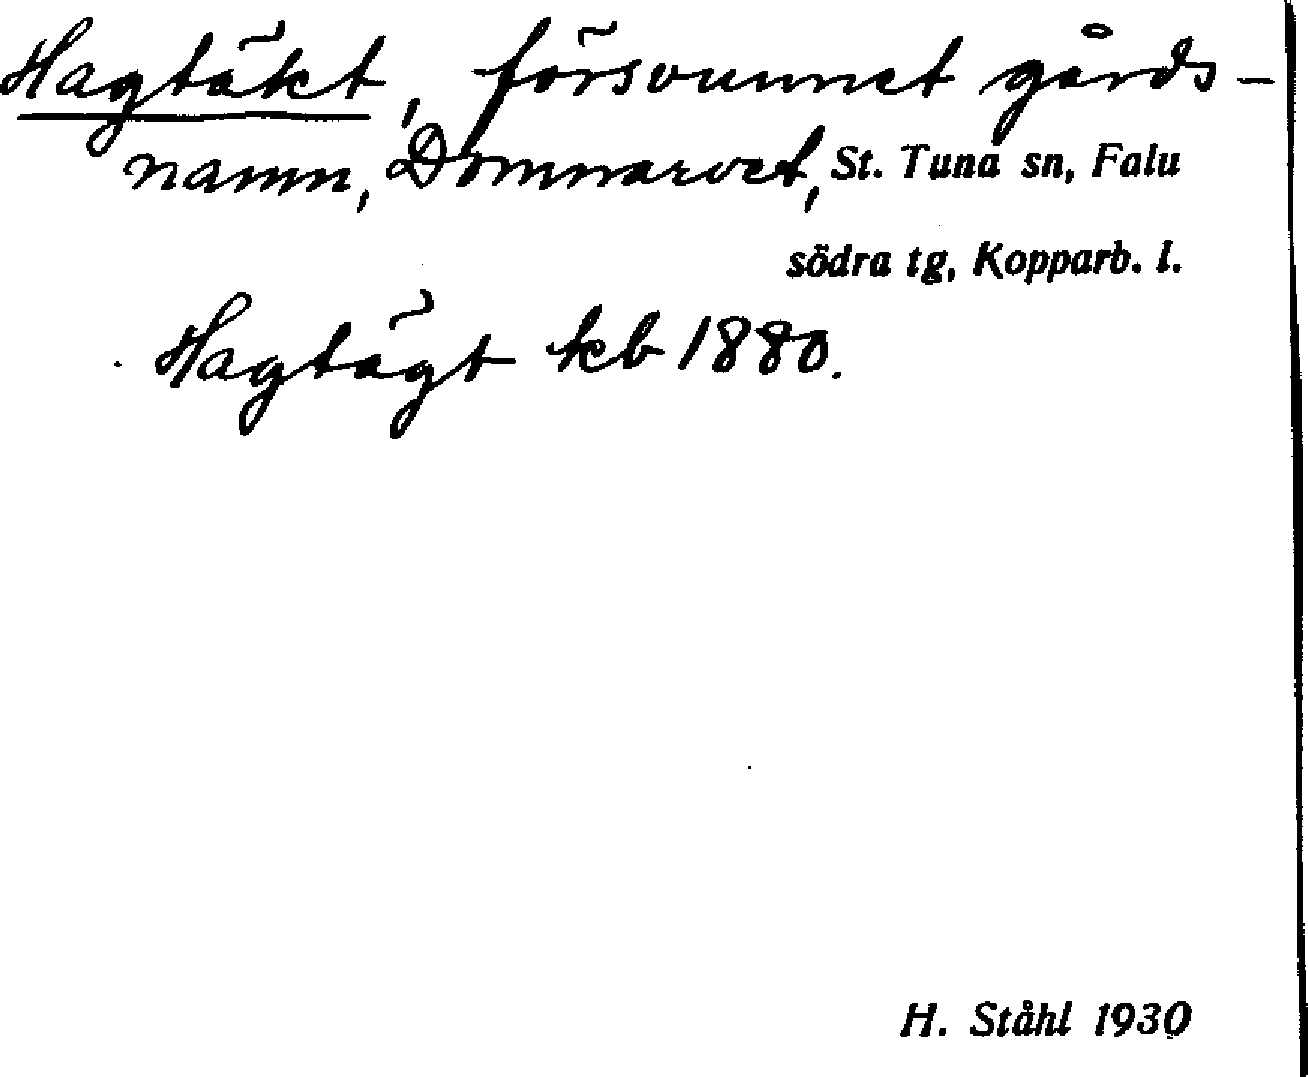 Hagtäkt, försvunnet gårds-
namn, Domnarvet, St. Tuna sn, Falu
södra tg, Kopparb. l.
Hagtägt kb 1880.
H. Ståhl 1930